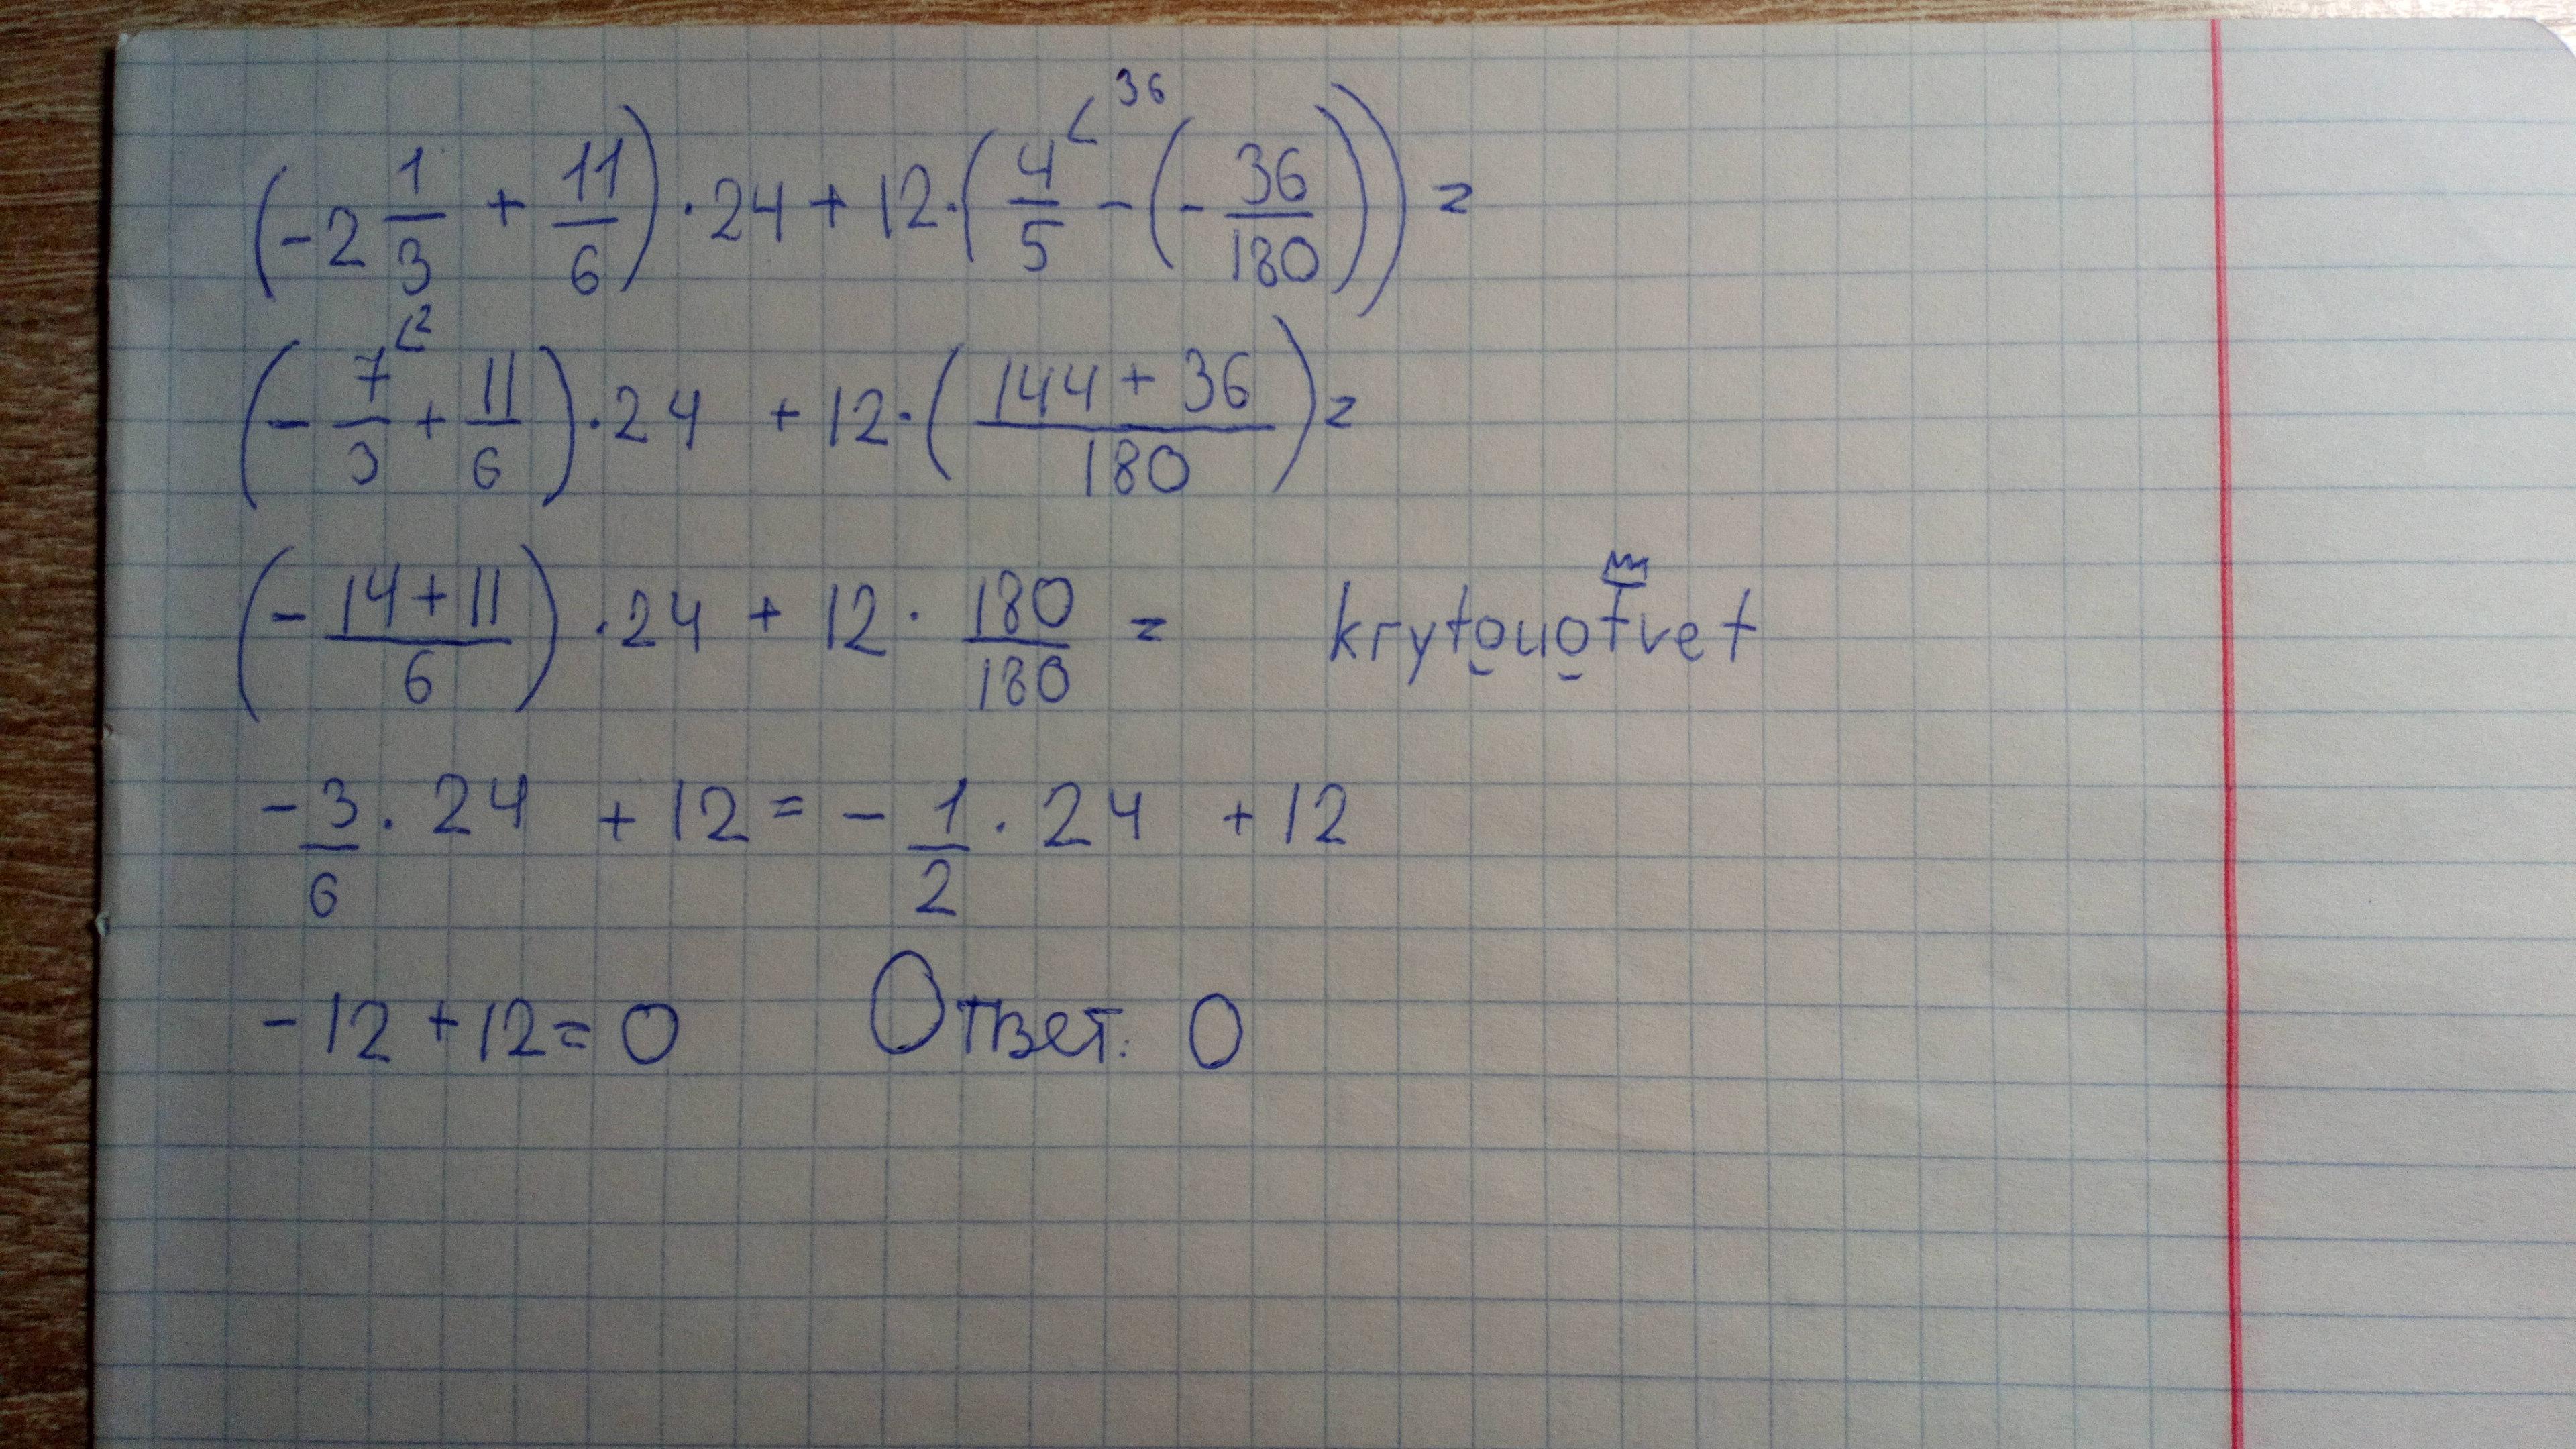 (-2 1/3 + 11/6) · 24 + 12 · (4/5 <36 - (- 36/180)) =
(- 7/3 <2 + 11/6) · 24 + 12 · (144 + 36 / 180) =
(- 14 + 11 / 6) · 24 + 12 · 180/180 = krytouotvet
- 3/6 · 24 + 12 = - 1/2 · 24 + 12
- 12 + 12 = 0 Ответ: 0